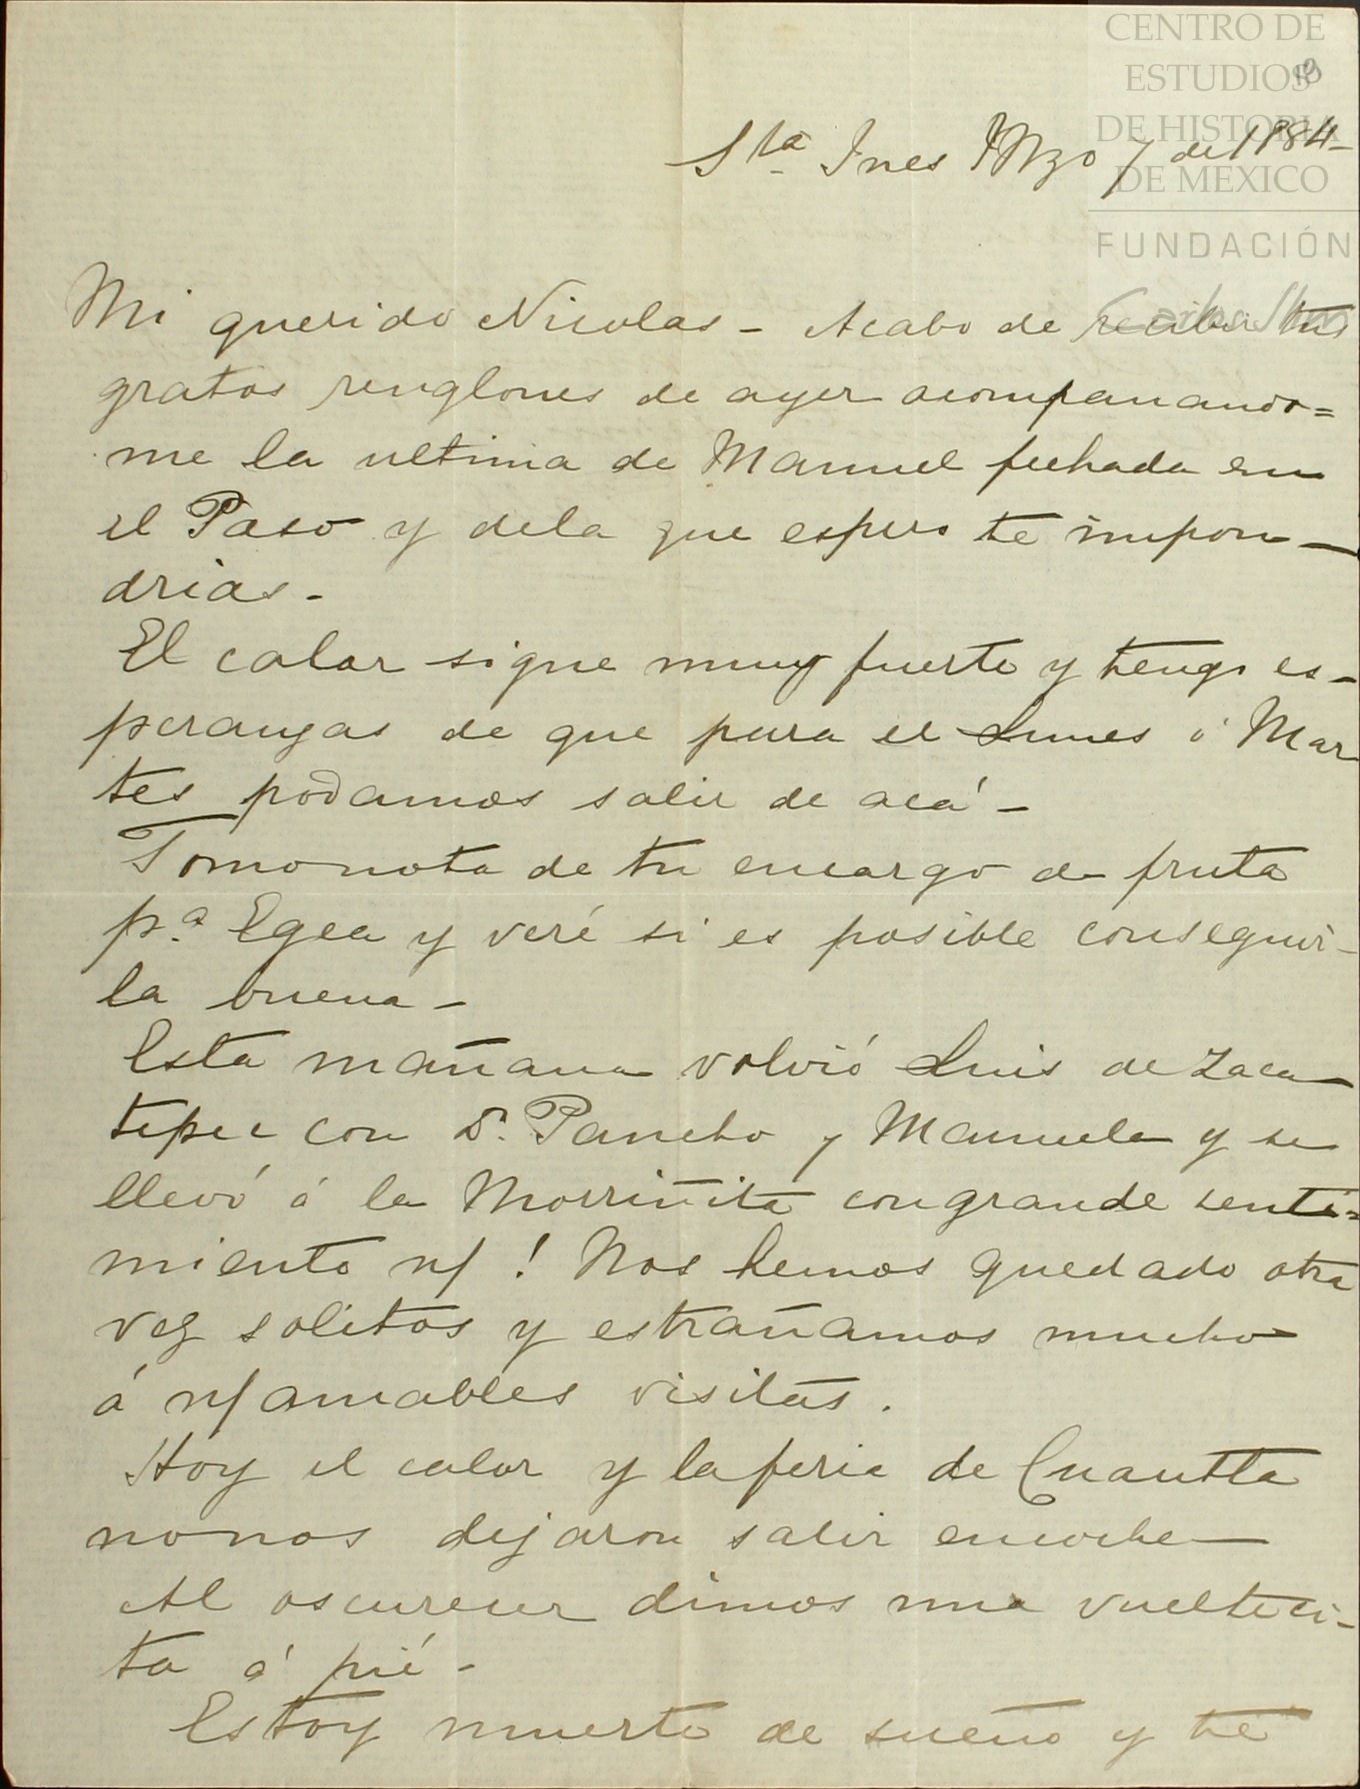 CENTRO DE
ESTUDIOS
DE HISTORIA
DE MEXICO
FUNDACIÓN
Sta Ines Mzo 7 de 1884-
Mi querido Nicolas - Acabo de recibir tus
gratos renglones de ayer acompanando=
me la ultima de Manuel fechada en
el Paso y dela que espero te impon-
drias-
El calor sigue muy fuerte y tengo es-
peranzas de que para el Lunes ó Mar
tes podamos salir de acá-
Tomo nota de tu encargo de fruta
pa. Egea y veré si es posible conseguir-
la buena-
Esta mañana volvió Luis de Zaca
tepec con D. Pancho y Manuela y se
llevó á la Morriñita con grande senti=
miento n/ ! Nos hemos quedado otra
vez solitos y estrañamos mucho
á n/ amables visitas.
Hoy el calor y la feria de Cuautla
no nos dejaron salir en coche-
Al oscurecer dimos una vuelteci-
ta á pié-
Estoy muerto de sueño y te